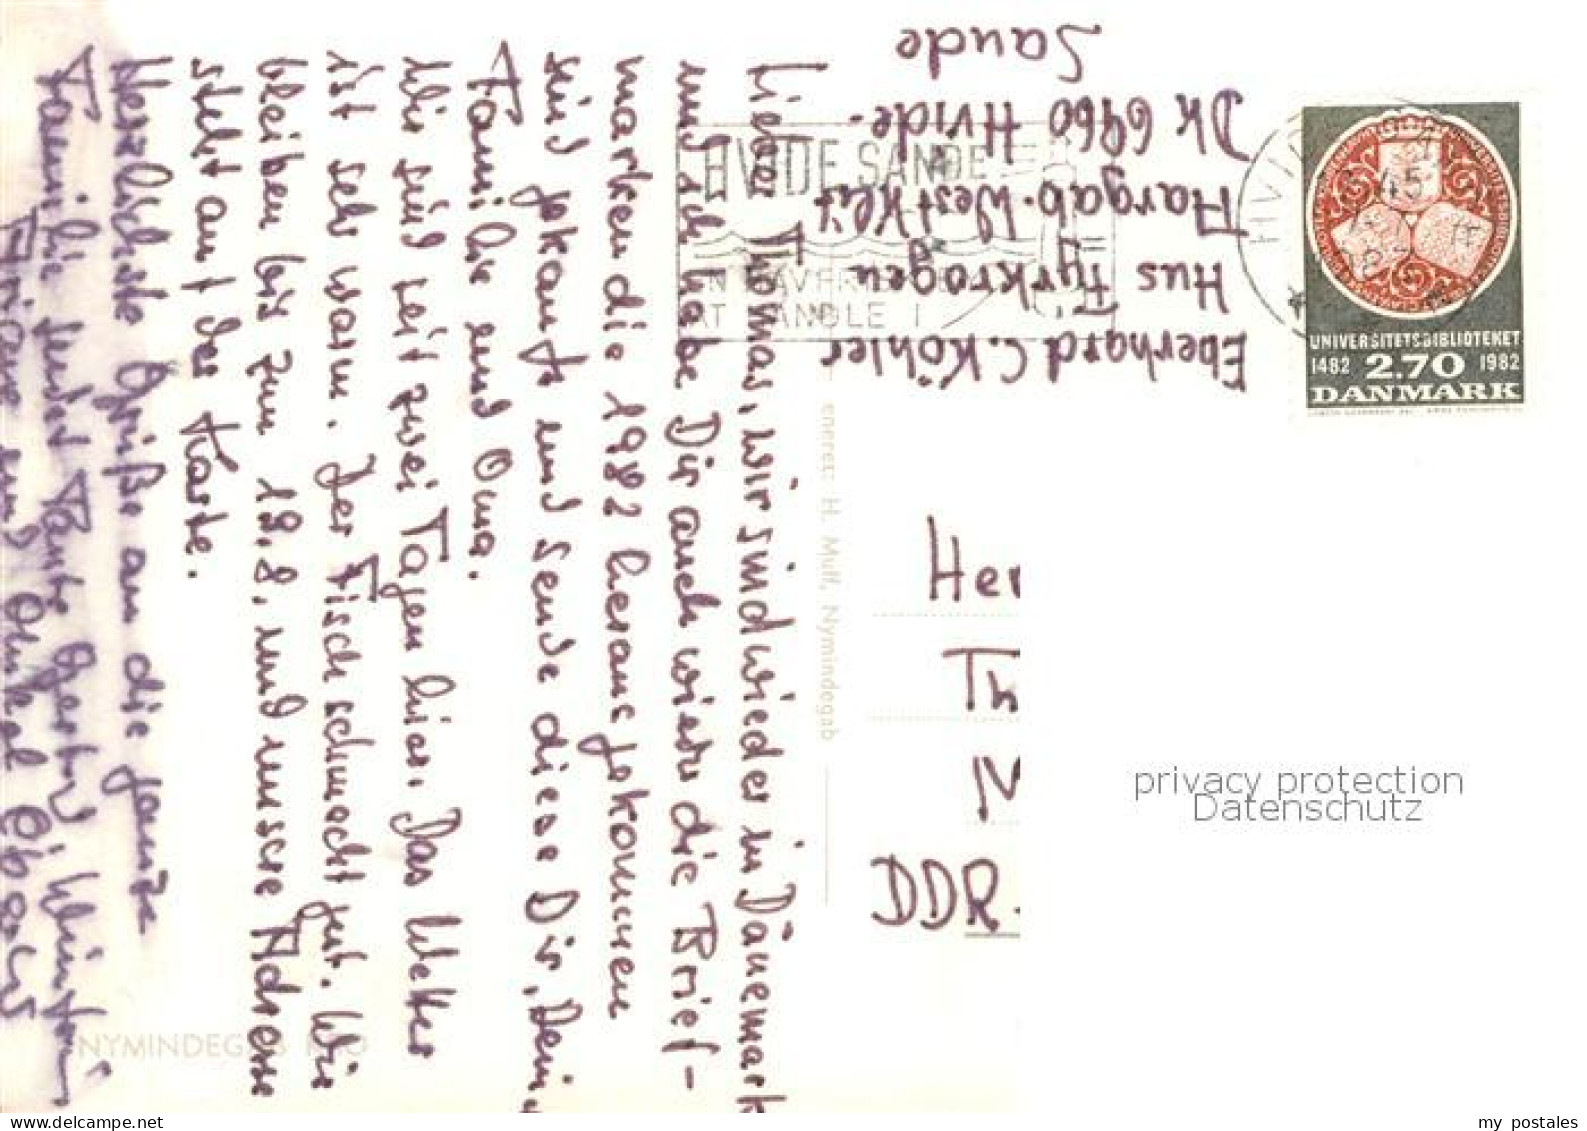 Lieber Thomas, wir sind wieder in Dänemark
und ich habe Dir auch wieder die Brief-
marken die 1982 herausgekommen
sind gekauft und sende diese Dir, Deiner
Familie und Oma.
Wir sind seit zwei Tagen hier. Das Wetter
ist sehr warm. Der Fisch schmeckt gut. Wir
bleiben bis zum 19.8. und unsere Adresse
steht auf der Karte.
Herzlichste Grüße an die ganze
Familie sendet Tante
und Onkel
Eberhard C. Köhler
Hus Fyrkrogen
Aargab-Westklit
DK 6960 Hvide-
Sande
HVIDE SANDE
UNIVERSITETSBIBLIOTEKET
1482 2.70 1982
DANMARK
eneret: H. Muff, Nymindegab
Her
Th
DDR
privacy protection
Datenschutz
NYMINDEGAB KRO
my postales